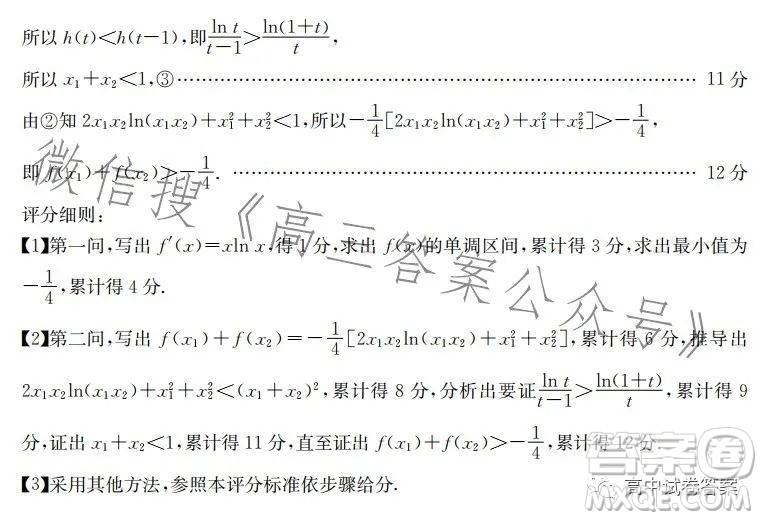 所以 h(t)<h(t-1),即 ln t/(t-1)>ln(1+t)/t,
所以 x₁+x₂<1,③………………………………………… 11 分
由②知 2x₁x₂ln(x₁x₂)+x₁²+x₂²<1,所以-1/4[2x₁x₂ln(x₁x₂)+x₁²+x₂²]>-1/4,
即 f(x₁)+f(x₂)>-1/4. ………………………………………… 12 分
评分细则:
【1】第一问,写出 f′(x)=xln x,得 1 分,求出 f(x)的单调区间,累计得 3 分,求出最小值为
-1/4,累计得 4 分.
【2】第二问,写出 f(x₁)+f(x₂)=-1/4[2x₁x₂ln(x₁x₂)+x₁²+x₂²],累计得 6 分,推导出
2x₁x₂ln(x₁x₂)+x₁²+x₂²<(x₁+x₂)²,累计得 8 分,分析出要证 ln t/(t-1)>ln(1+t)/t,累计得 9
分,证出 x₁+x₂<1,累计得 11 分,直至证出 f(x₁)+f(x₂)>-1/4,累计得 12 分.
【3】采用其他方法,参照本评分标准依步骤给分.
微信搜《高三答案公众号》
答案卷
高中试卷答案
MXQE.COM